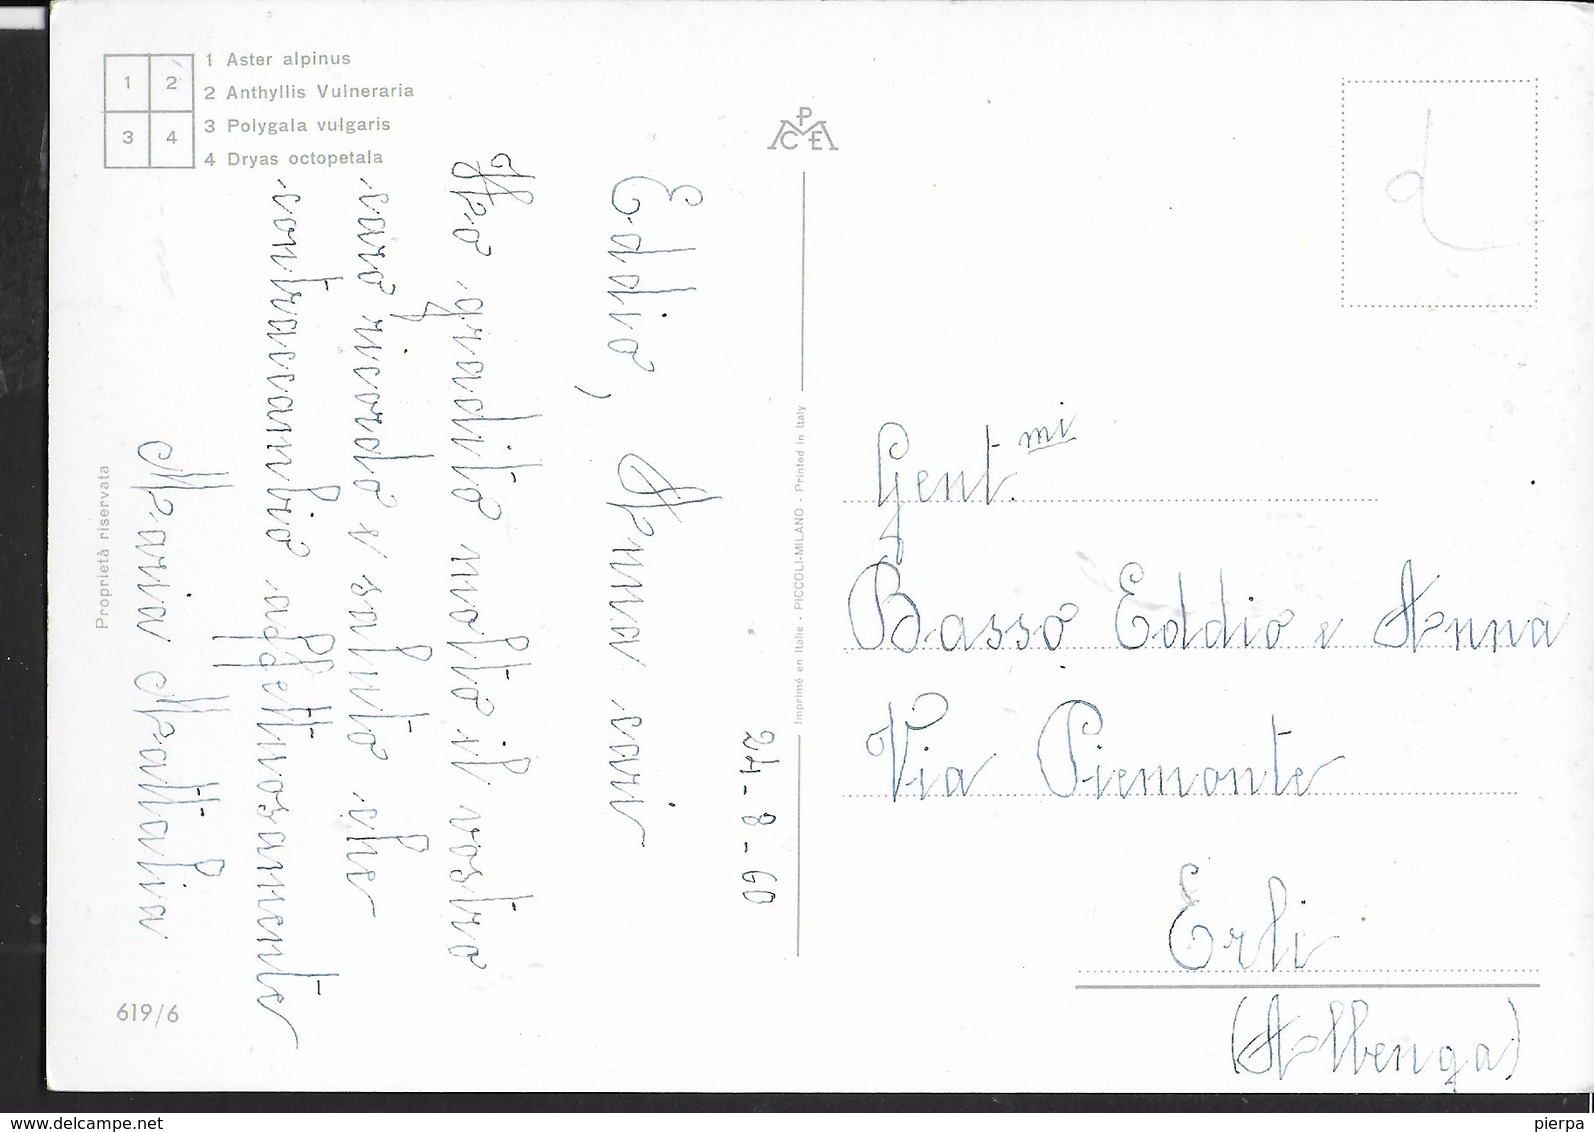 1 2
3 4
1 Aster alpinus
2 Anthyllis Vulneraria
3 Polygala vulgaris
4 Dryas octopetala
PCE
24-8-60
Eddio, Anna cari
Ho gradito molto il vostro
caro ricordo e saluto che
contraccambio affettuosamente
Maria Mattalia
Proprietà riservata
619/6
Imprimé en Italie - PICCOLI-MILANO - Printed in Italy
Gent.mi
Basso Eddio e Anna
Via Piemonte
Erli
(Albenga)
www.delcampe.net
pierpa